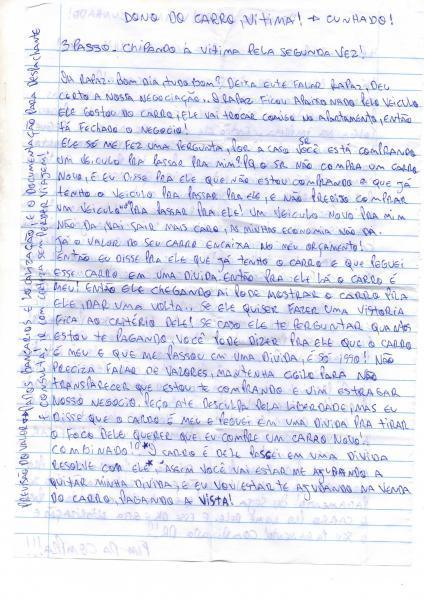 DONO DO CARRO, VITIMA! → CUNHADO!
3º PASSO. CHIPANDO A VITIMA PELA SEGUNDA VEZ!
RAPAZ. BOM DIA, TUDO BOM? DEIXA EU TE FALAR RAPAZ, DEU
CERTO A NOSSA NEGOCIAÇÃO.. O RAPAZ FICOU APAIXONADO PELO VEICULO
ELE GOSTOU DO CARRO, ELE VAI TROCAR COMIGO NO APARTAMENTO, ENTÃO
TÁ FECHADO O NEGOCIO!
ELE SÓ ME FEZ UMA PERGUNTA, POR A CASO SR VOCÊ ESTÁ COMPRANDO
UM VEICULO PRA PASSAR PRA MIM? PQ O SR NÃO COMPRA UM CARRO
NOVO, E EU DISSE PRA ELE QUE NÃO ESTOU COMPRANDO E QUE JÁ
TENHO O VEICULO PRA PASSAR PRA ELE, E NÃO PRECISO COMPRAR
UM VEICULO PRA PASSAR PRA ELE! UM VEICULO NOVO PRA MIM
NÃO DA, VAI SAIR MAIS CARO, AS MINHAS ECONOMIA NÃO DA.
JÁ O VALOR DO SEU CARRO ENCAIXA NO MEU ORÇAMENTO!
ENTÃO EU DISSE PRA ELE QUE JÁ TENHO O CARRO E QUE PEGUEI
ESSE CARRO EM UMA DIVIDA. ENTÃO PRA ELE LÁ O CARRO É
MEU! ENTÃO ELE CHEGANDO AI PODE MOSTRAR O CARRO PRA
ELE, DAR UMA VOLTA.. SE ELE QUISER FAZER UMA VISTORIA
FICA AO CRITÉRIO DELE! SE CASO ELE TE PERGUNTAR QUANTO
ESTOU TE PAGANDO, VOCÊ PODE DIZER PRA ELE QUE O CARRO
É MEU E QUE ME PASSOU EM UMA DIVIDA, É SÓ ISSO! NÃO
PRECIZA FALAR DE VALORES, MANTENHA SIGILO PARA NÃO
TRANSPARECER QUE ESTOU TE COMPRANDO E VIM ESTRAGAR
NOSSO NEGOCIO. PEÇO ATÉ DESCULPA PELA LIBERDADE, MAS EU
DISSE QUE O CARRO É MEU E PEGUEI EM UMA DIVIDA PRA TIRAR
O FOCO DELE QUERER QUE EU COMPRE UM CARRO NOVO..
COMBINADO! CARRO É DELE PASSEI EM UMA DIVIDA
RESOLVE COM ELE*, ASSIM VOCÊ VAI ESTAR ME AJUDANDO A
QUITAR MINHA DIVIDA, E EU VOU ESTAR TE AJUDANDO NA VENDA
DO CARRO, PAGANDO A VISTA!
PREVISÃO DO VALOR + DADOS BANCARIOS E LOCALIZAÇÃO, E O DOCUMENTAÇÃO PARA DESPACHANTE